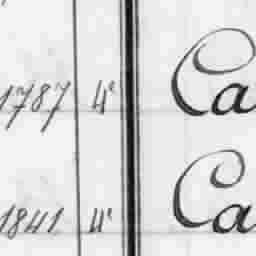 1787 4e Ca
1841 4e Ca